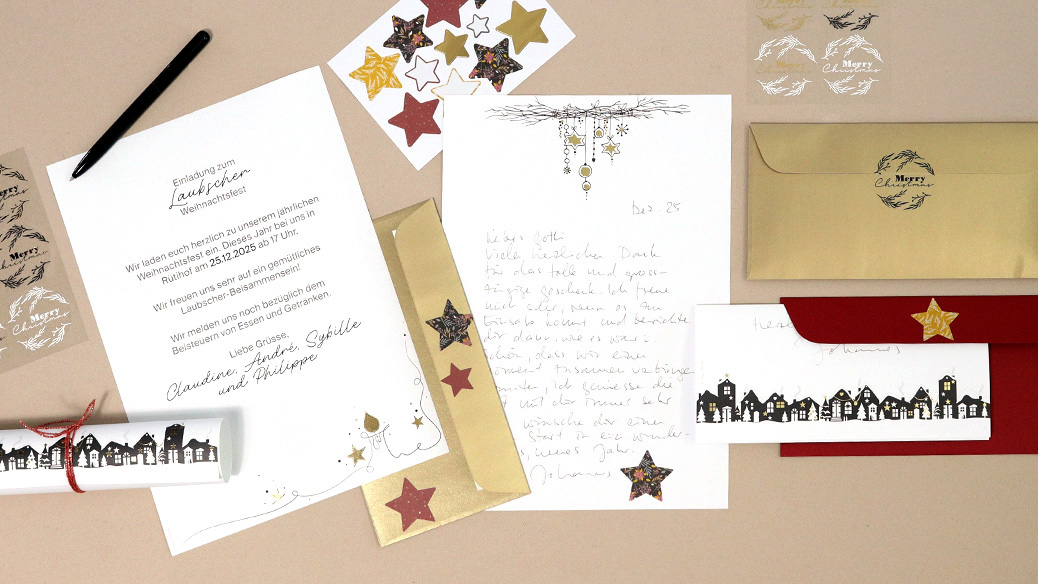 Einladung zum
Laubscher
Weihnachtsfest
Wir laden euch herzlich zu unserem jährlichen
Weihnachtsfest ein. Dieses Jahr bei uns in
Rütihof am 25.12.2025 ab 17 Uhr.
Wir freuen uns sehr auf ein gemütliches
Laubscher-Beisammensein!
Wir melden uns noch bezüglich dem
Beisteuern von Essen und Getränken.
Liebe Grüsse,
Claudine, André, Sybille
und Philippe
Dez. 25
Liebes Gotti
Viele herzlichen Dank
für das tolle und gross-
zügige Geschenk. Ich freue
mich sehr, wenn es
kommt und berichte
dir dann, wie es war.
schön, dass wir einen
Moment zusammen verbringen
konnten, ich geniesse die
mit dir immer sehr
wünsche dir einen
Start in ein wunder-
neues Jahr.
Johannes
Merry
Christmas
Merry
Christmas
Merry
Christmas
Johannes
Merry
Christmas
Merry
Christmas
Merry
Christmas